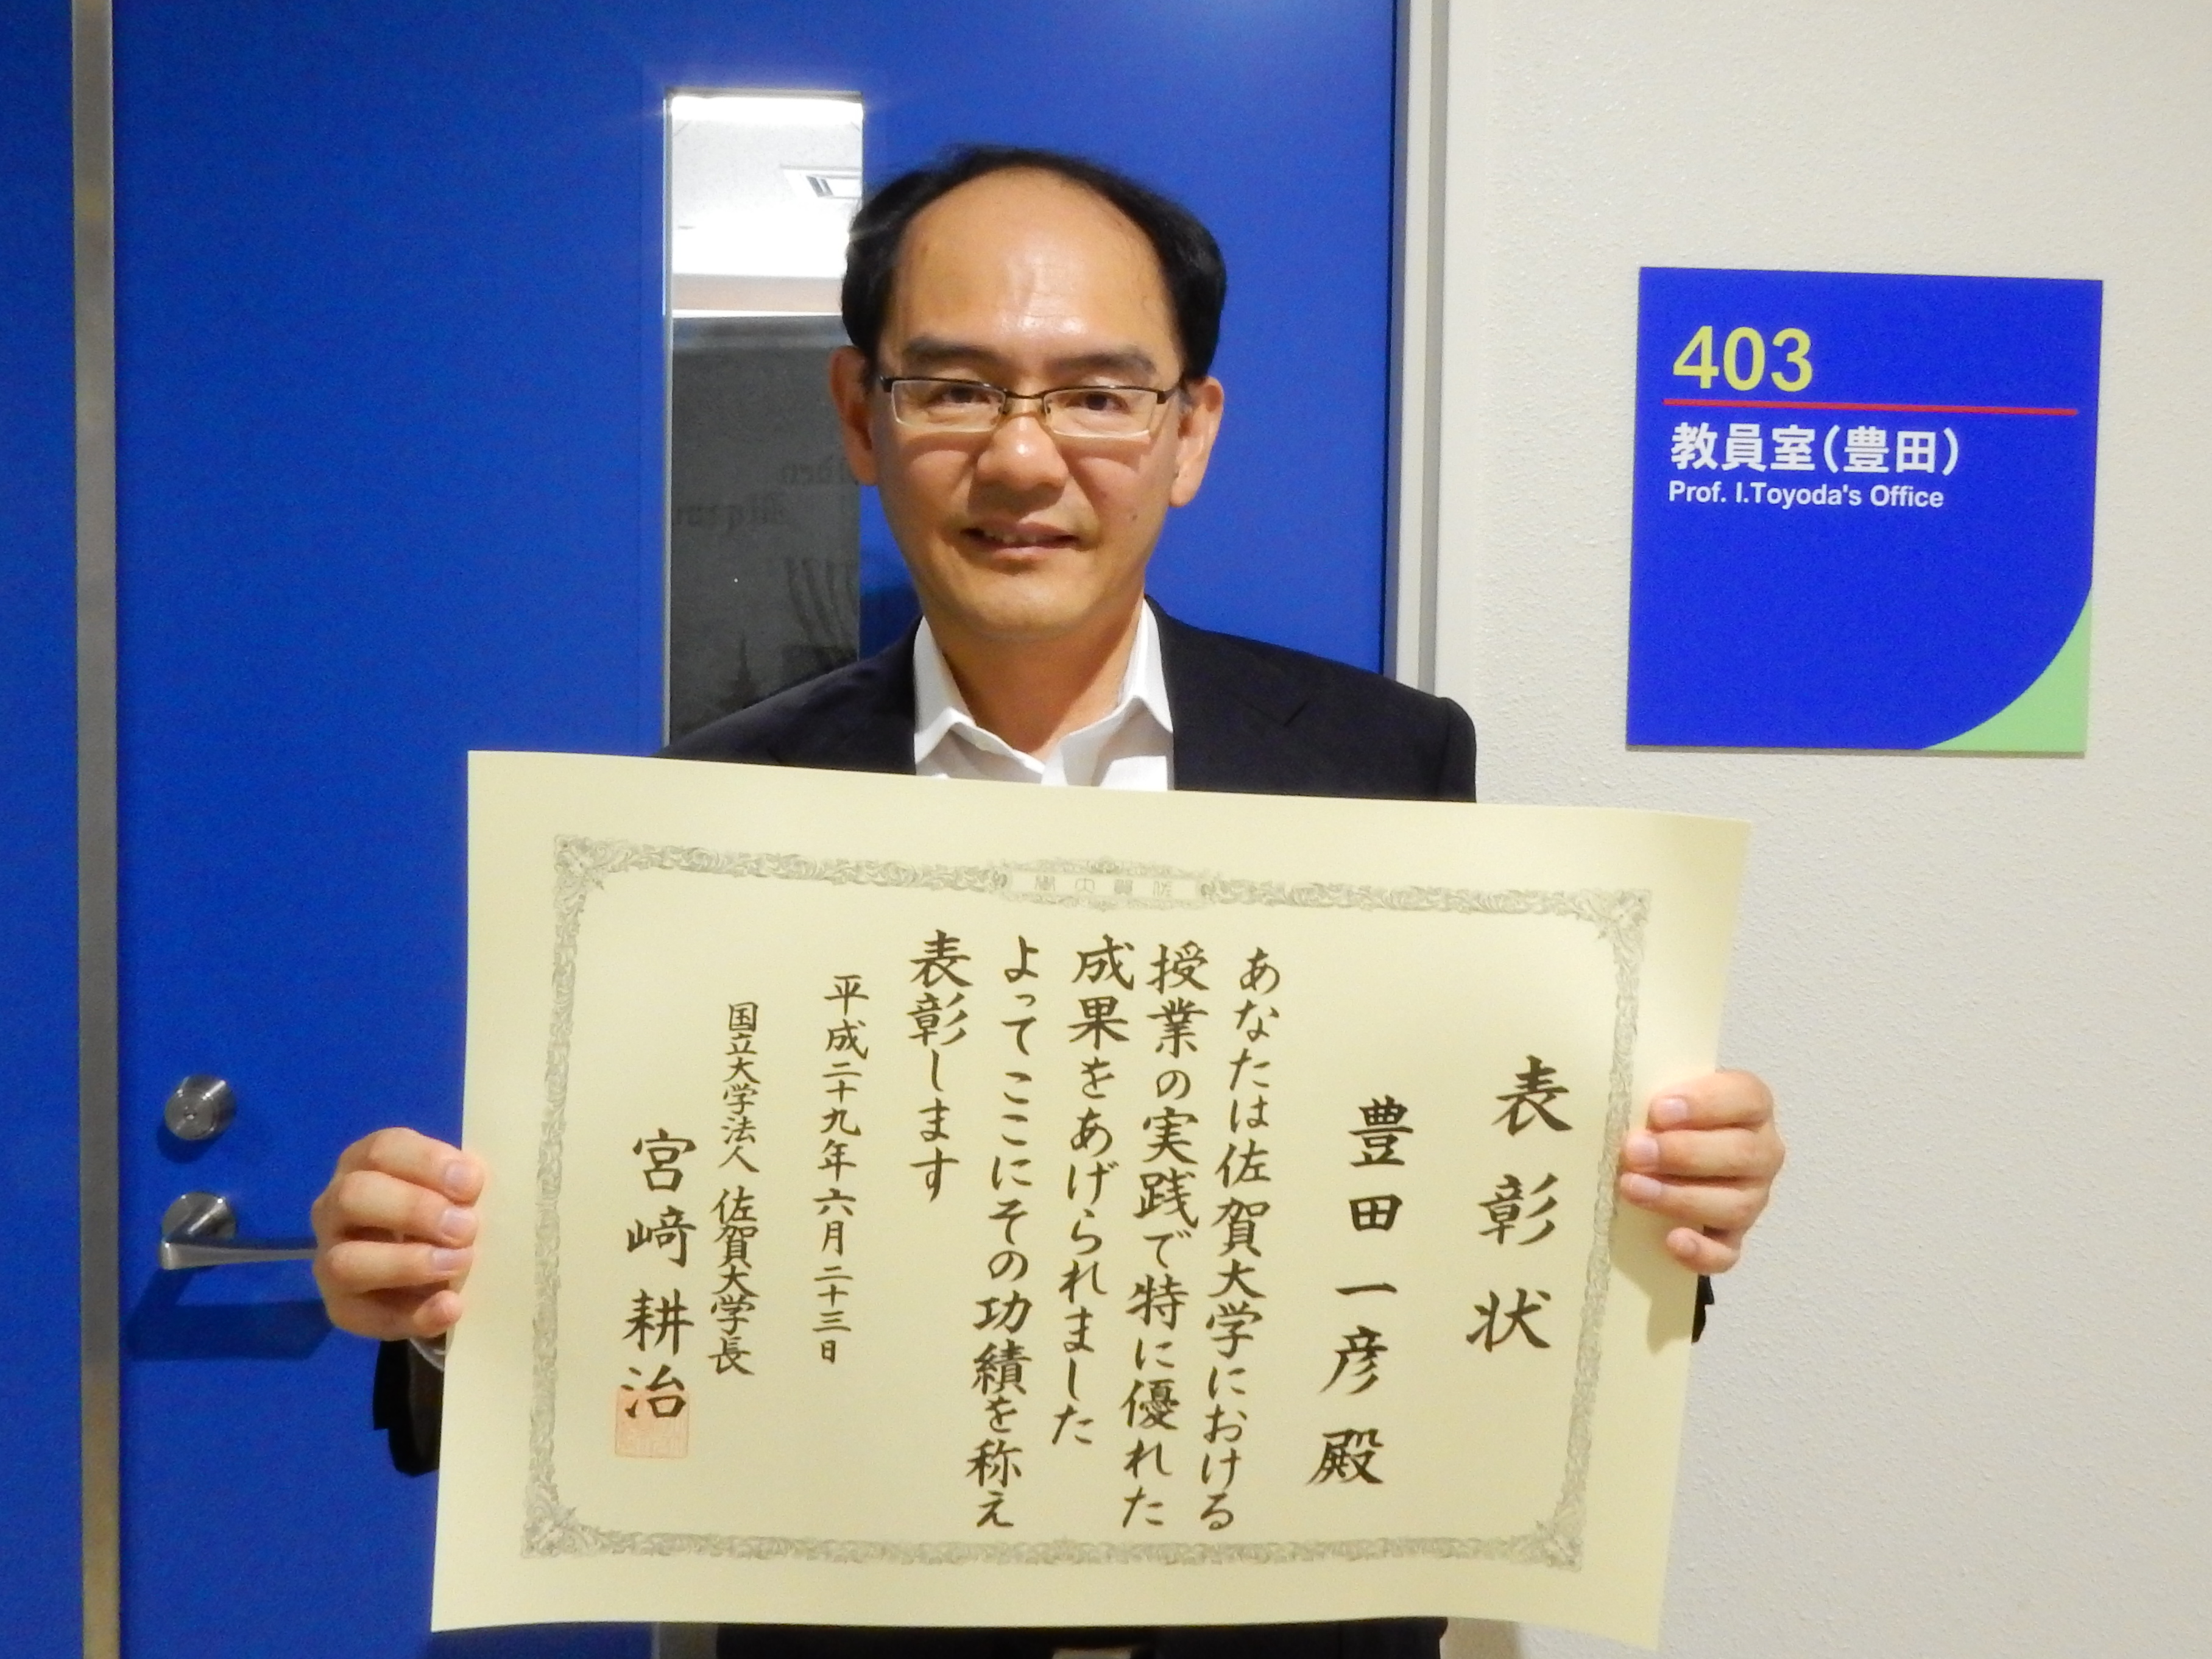 403
教員室(豊田)
Prof. I.Toyoda's Office
佐賀大學
表彰状
豊田一彦殿
あなたは佐賀大学における
授業の実践で特に優れた
成果をあげられました
よってここにその功績を称え
表彰します
平成二十九年六月二十三日
国立大学法人 佐賀大学長
宮﨑耕治